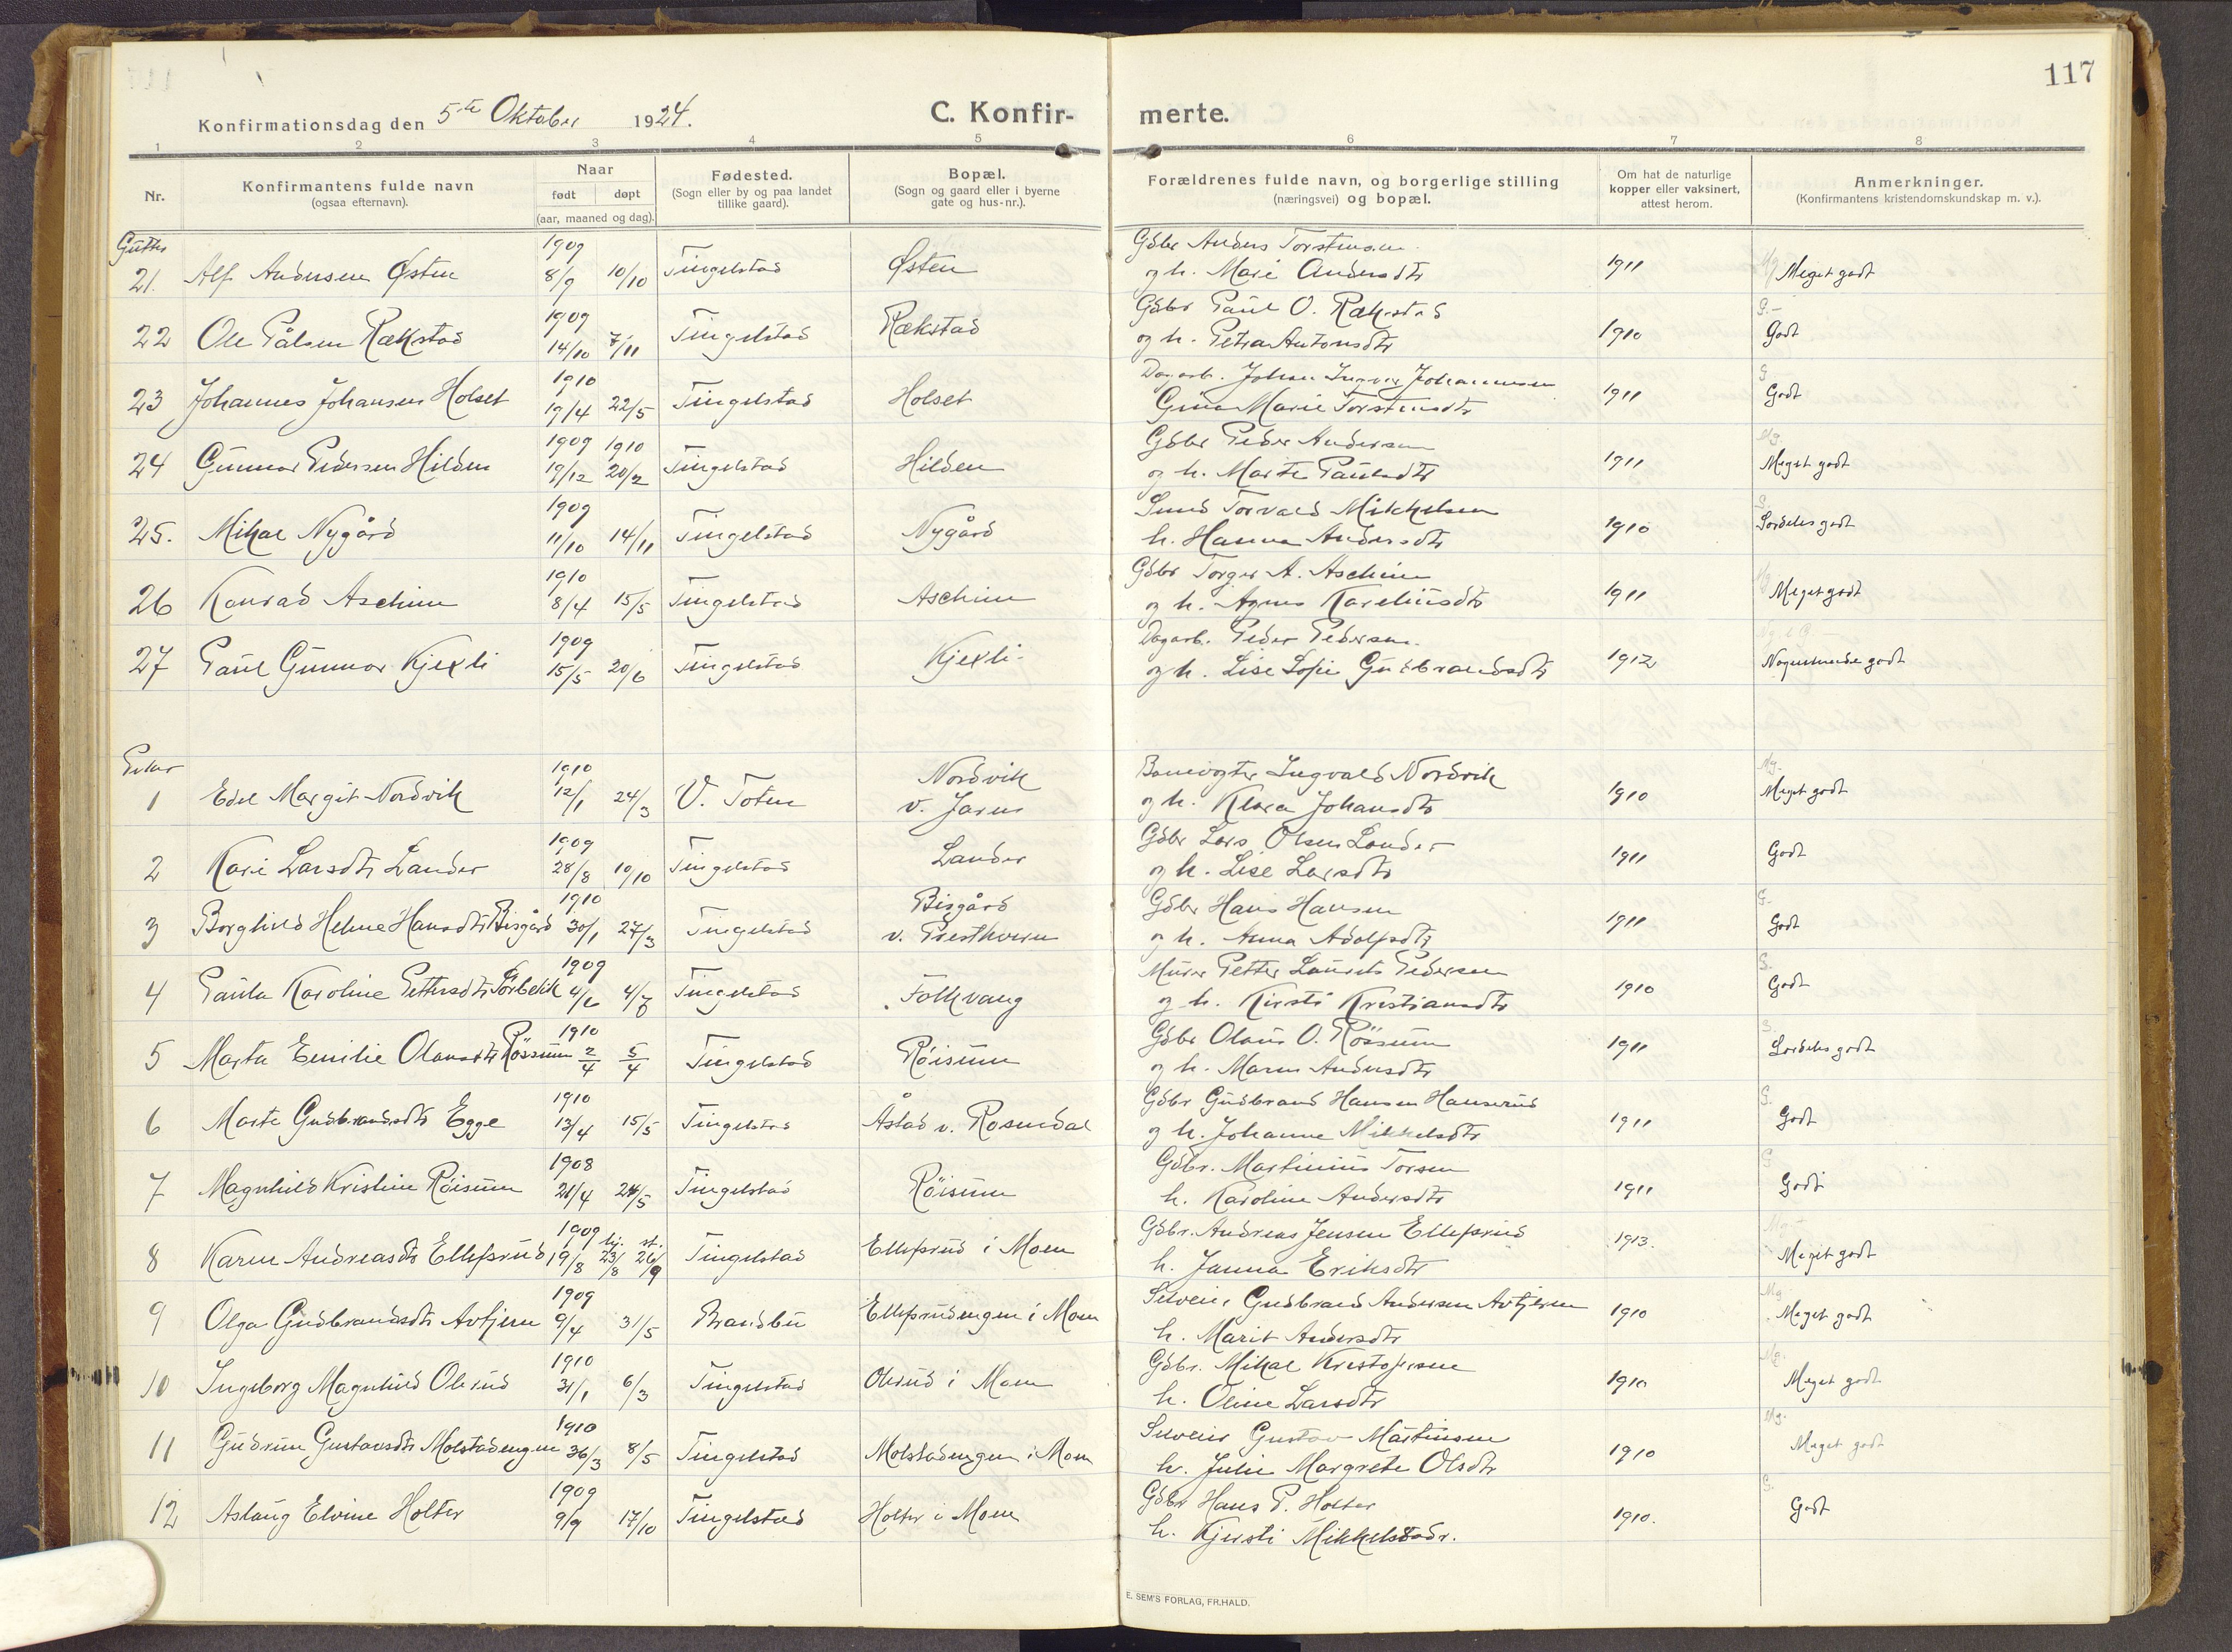 117
Konfirmationsdag den 5te Oktober 1924.
C. Konfirmerte.
1 2 3 4 5 6 7 8
Nr.
Konfirmantens fulde navn
(ogsaa efternavn).
Naar
født døpt
(aar, maaned og dag).
Fødested.
(Sogn eller by og paa landet
tillike gaard).
Bopæl.
(Sogn og gaard eller i byerne
gate og hus-nr.).
Forældrenes fulde navn, og borgerlige stilling
(næringsvei) og bopæl.
Om hat de naturlige
kopper eller vaksinert,
attest herom.
Anmerkninger.
(Konfirmantens kristendomskundskap m. v.).
Gutter
1909 Gdbr Anders Torstensen
21. Alf Andersen Østen 8/9 10/10 Tingelstad Østen og h. Mari Andersdtr 1911 Mg Meget godt
1909 Gdbr Paul O. Rækstad G.-
22 Ole Pålsen Rækstad 14/10 7/11 Tingelstad Rækstad og h. Petra Antonsdtr 1910 Godt
1910 Dagarb. Johan Ingvar Johannesen G
23 Johannes Johansen Holset 19/4 22/5 Tingelstad Holset Gina Marie Torstensdtr 1911 Godt
1909 1910 Gdbr Peder Andersen Mg.
24 Gunnar Pedersen Hilden 19/12 20/2 Tingelstad Hilden og h. Marte Paulsdtr 1911 Meget godt
1909 Smed Torvald Mikkelsen S
25. Mikal Nygård 11/10 14/11 Tingelstad Nygård h. Hanna Andersdtr 1910 Særdeles godt
1910 Gdbr Torger A. Aschim
26 Konrad Aschim 8/4 15/5 Tingelstad Aschim og h. Agnes Kareliusdtr 1911 Mg Meget godt
1909 Dagarb. Peder Pedersen
27 Paul Gunnar Kjekli 15/5 20/6 Tingelstad Kjekli og h. Lise Sofie Gudbrandsdtr 1912 Nogenlunde godt
Piker
1910 Nordvik Banevogter Ingvald Nordvik Mg.
1 Edel Margit Nordvik 12/1 24/3 V. Toten v. Jaren og h. Klara Johansdtr 1910 Meget godt
1909 Gdbr Lars Olsen Lander
2 Kari Larsdtr Lander 28/8 10/10 Tingelstad Lander og h. Lise Larsdtr 1911 Godt
1910 Bisgård Gdbr Hans Hansen G.
3 Borghild Helene Hansdtr Bisgård 30/1 27/3 Tingelstad v. Presthvern og h. Anna Adolfsdtr 1911 Godt
1909 Murer Petter Laurits Pedersen G.
4 Paula Karoline Pettersdtr Sørbekk 4/6 4/7 Tingelstad Folkvang og h. Kirsti Kristiansdtr 1910 Godt
1910 Gdbr Olaus O. Røssum S.
5 Marta Emilie Olausdtr Røssum 2/4 5/4 Tingelstad Røisum og h. Maren Andersdtr 1911 Særdeles godt
1910 Gdbr Gudbrand Hansen Hanserud G.
6 Marte Gudbrandsdtr Egge 13/4 15/5 Tingelstad Åstad v. Rosendal og h. Johanne Mikkelsdtr 1911 Godt
1908 Gdbr. Martinius Torsen G
7 Magnhild Kristine Røisum 21/4 24/5 Tingelstad Røisum h. Karoline Andersdtr 1911 Godt
1909 hj. st. Gdbr. Andreas Jensen Ellefsrud
8 Karen Andreasdtr Ellefsrud 19/8 23/8 26/9 Tingelstad Ellefsrud i Moen h. Janna Eriksdtr 1913. Meget godt
1909 Selveier Gudbrand Andersen Avtjern Mg
9 Olga Gudbrandsdtr Avtjern 9/4 31/5 Brandbu Ellefsrudengen i Moen h. Marit Andersdtr 1910 Meget godt
1910 Gdbr. Mikal Kristofersen Mg.
10 Ingeborg Magnhild Olerud 31/1 6/3 Tingelstad Olerud i Moen h. Oline Larsdtr 1910 Meget godt
1910 Selveier Gustav Martinsen Mg.
11 Gudrun Gustavsdtr Molstadengen 30/3 8/5 Tingelstad Molstadengen i Moen h. Julie Margrete Olsdtr 1910 Meget godt
1909 Gdbr Hans P. Holter G.
12 Aslaug Elvine Holter 9/9 17/10 Tingelstad Holter i Moen h. Kjersti Mikkelsdtr. 1910. Godt
E. SEM'S FORLAG, FR.HALD.